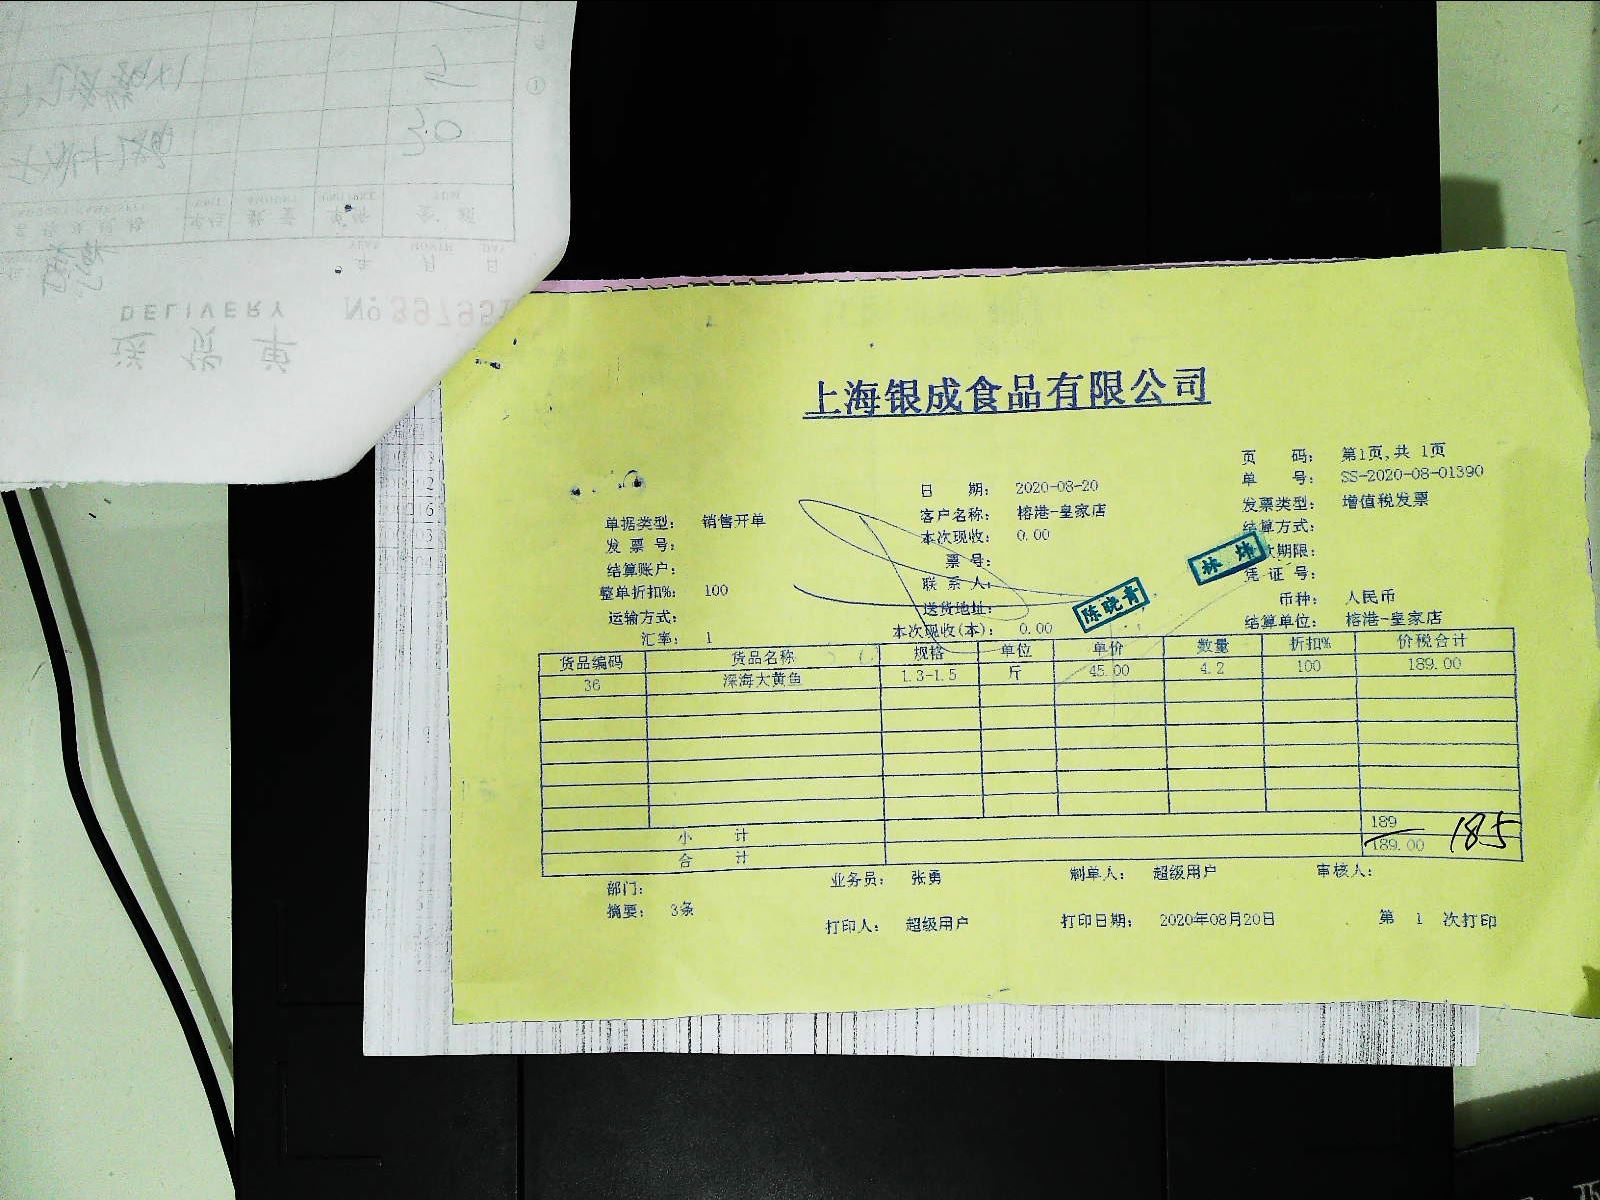 DELIVERY
送货单
№ 897951
30
上海银成食品有限公司
页 码： 第1页,共 1页
单 号： SS-2020-08-01390
日 期： 2020-08-20
发票类型： 增值税发票
单据类型： 销售开单
客户名称： 榕港-皇家店
结算方式：
发 票 号：
本次现收： 0.00
款期限：
结算账户：
票 号：
凭 证 号：
整单折扣%： 100
联 系 人：
币种： 人民币
运输方式：
送货地址：
结算单位： 榕港-皇家店
汇率： 1
本次现收(本)： 0.00
陈晓青
林
货品编码 货品名称 规格 单位 单价 数量 折扣% 价税合计
36 深海大黄鱼 1.3-1.5 斤 45.00 4.2 100 189.00
小 计 189
合 计 189.00
185
部门： 业务员： 张勇 制单人： 超级用户 审核人：
摘要： 3条
打印人： 超级用户 打印日期： 2020年08月20日 第 1 次打印